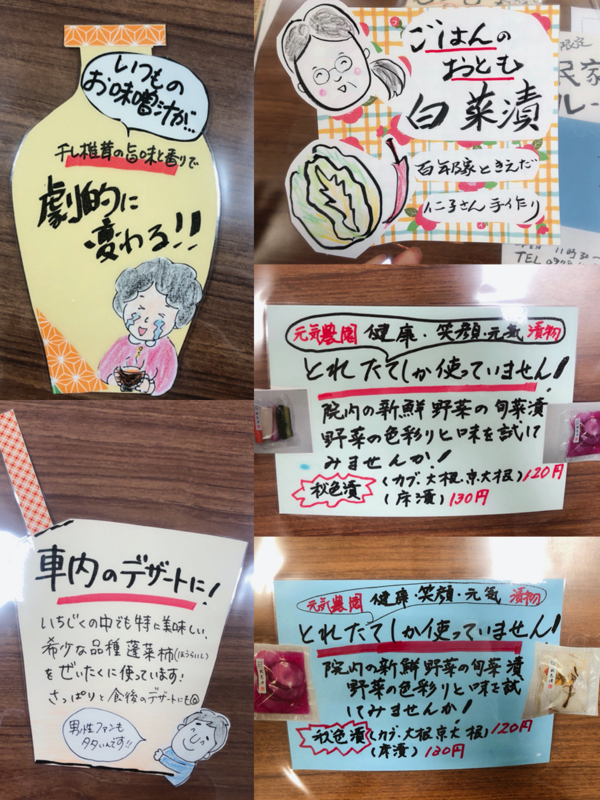 いつもの
お味噌汁が…
干し椎茸の旨味と香りで
劇的に
変わる!!
ごはんの
おとも
白菜漬
百年豚ときえだ
仁子さん手作り
限定
民家
ルー
TEL
元気農園 健康・笑顔・元気 漬物
とれたてしか使っていません!
院内の新鮮野菜の旬菜漬
野菜の色彩りと味を試して
みませんか!
秋色漬 (カブ、大根、京大根) 120円
(床漬) 130円
車内のデザートに!
いちじくの中でも特に美味しい、
希少な品種 蓬莱柿(ほうらいし)
をぜいたくに使っています!
さっぱりと食後のデザートにも◎
男性ファンも
多いんです!!
元気農園 健康・笑顔・元気 漬物
とれたてしか使っていません!
院内の新鮮野菜の旬菜漬
野菜の色彩りと味を試
してみませんか!
秋色漬 (カブ、大根京大根) 120円
(床漬) 130円